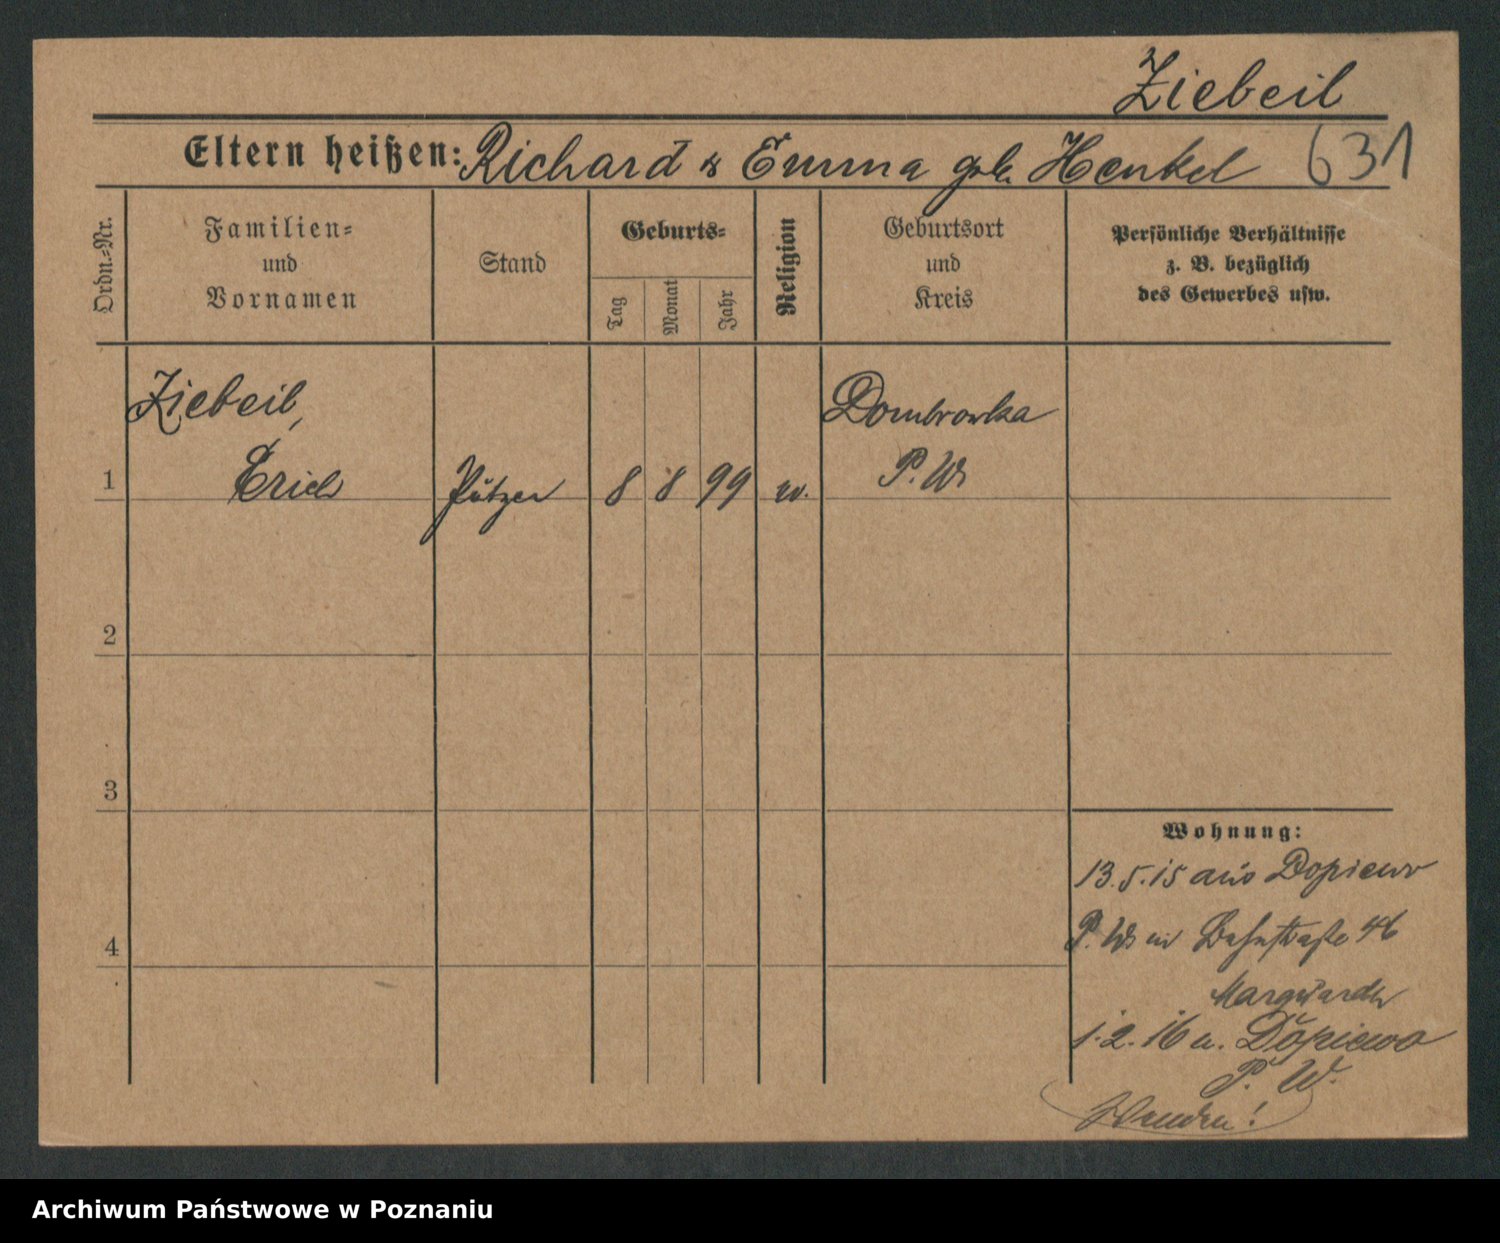 Ziebeil
Eltern heißen: Richard & Emma geb. Henkel 631
Ordn.-Nr.
Familien-
und
Vornamen
Stand
Geburts-
Tag
Monat
Jahr
Religion
Geburtsort
und
Kreis
Persönliche Verhältnisse
z. B. bezüglich
des Gewerbes usw.
Ziebeil,
Dombrowka
1 Erich Putzer 8 8 99 P. W.
2
3
4
Wohnung:
13.5.15 aus Dopiewo
P. W. Bahnstraße 46
Marquardt
1.2.16 n. Dopiewo
P. W.
Wenden!
Archiwum Państwowe w Poznaniu